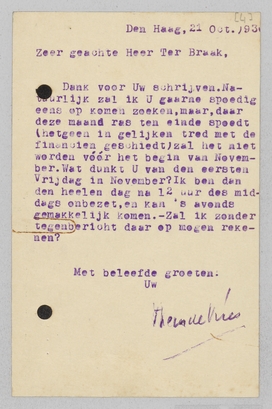 [4]
Den Haag, 21 Oct.)930
Zeer geachte Heer Ter Braak,
Dank voor Uw schrijven.Na-
tuurlijk zal ik U gaarne spoedig
eens op komen zoeken,maar,daar
deze maand ras ten einde spoedt
(hetgeen in gelijken tred met de
financien geschiedt)zal het niet
worden vóór het begin van Novem-
ber.Wat dunkt U van den eersten
Vrijdag in November?Ik ben dan
den heelen dag na 12 uur des mid-
dags onbezet,en kan 's avonds
gemakkelijk komen.-Zal ik zonder
tegenbericht daar op mogen reke-
nen?
Met beleefde groeten:
Uw